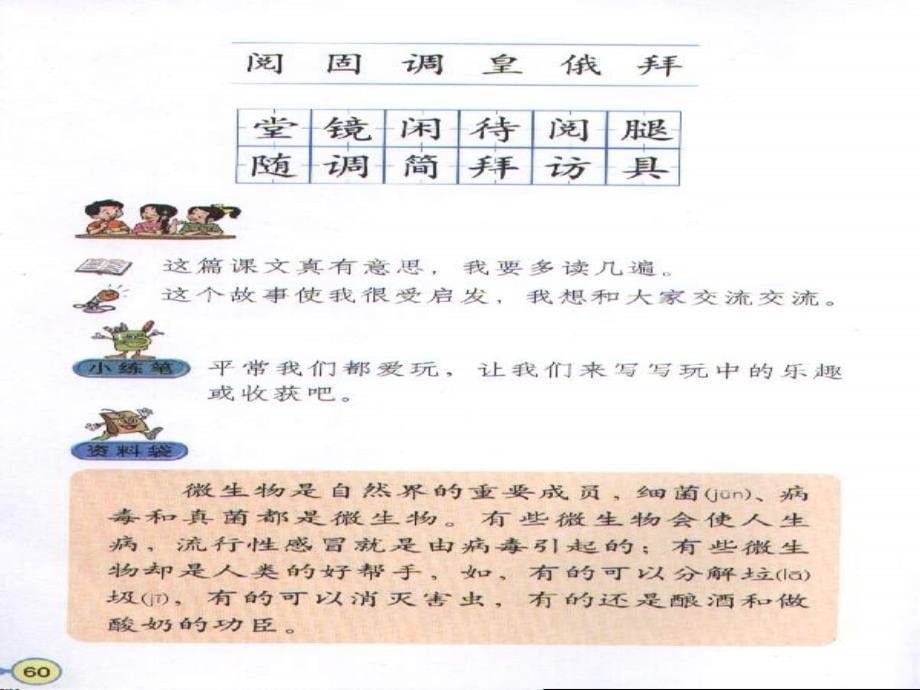 阅 固 调 皇 俄 拜
堂 镜 闲 待 阅 腿
随 调 简 拜 访 具
这篇课文真有意思，我要多读几遍。
这个故事使我很受启发，我想和大家交流交流。
小练笔 平常我们都爱玩，让我们来写写玩中的乐趣
或收获吧。
资料袋
微生物是自然界的重要成员，细菌(jūn)、病
毒和真菌都是微生物。有些微生物会使人生
病，流行性感冒就是由病毒引起的；有些微生
物却是人类的好帮手，如，有的可以分解垃(lā)
圾(jī)，有的可以消灭害虫，有的还是酿酒和做
酸奶的功臣。
60